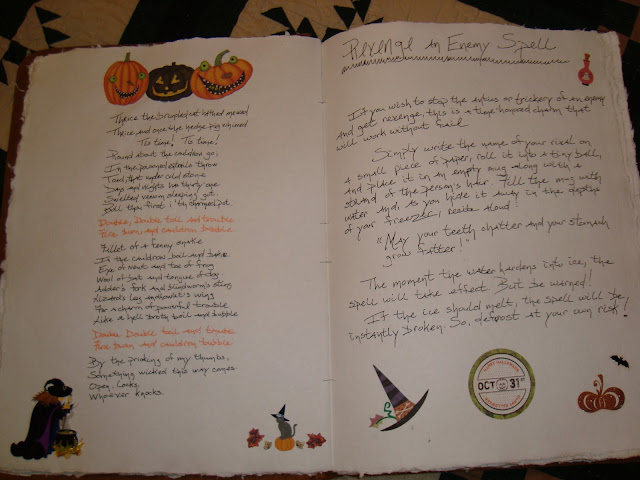 Thrice the brinded cat hathed mewed
Thrice, and once the hedge pig whined
Tis time! Tis time!
Round about the cauldron go;
In the poisoned entrails throw
Toad, that under cold stone
Days and nights has thirty one
Sweltered venom sleeping got
Boil thou first i 'th charmed pot.
Double, Double toil and trouble
Fire burn, and cauldron bubble
Fillet of a fenny snake
In the cauldron boil and bake
Eye of newt and toe of frog
Wool of bat and tongue of dog
Adder's fork and blindworm's sting
Lizard's leg and howlet's wing
For a charm of powerful trouble
Like a hell broth boil and bubble
Double Double toil and trouble
Fire burn and cauldron bubble
By the pricking of my thumbs,
Something wicked this way comes.
Open, Locks,
Whoever knocks.
Revenge An Enemy Spell
If you wish to stop the antics or trickery of an enemy
and get revenge, this is a time-honored charm that
will work without fail.
Simply write the name of your rival on
a small piece of paper, roll it into a tiny ball,
and place it in an empty mug along with a
strand of the person's hair. Fill the mug with
water and, as you hide it away in the depths
of your freezer, recite aloud:
"May your teeth chatter and your stomach
grow fatter!"
The moment the water hardens into ice, the
spell will take effect. But be warned!
If the ice should melt, the spell will be
instantly broken. So, defrost at your own risk!
HAPPY HALLOWEEN
OCT 31st